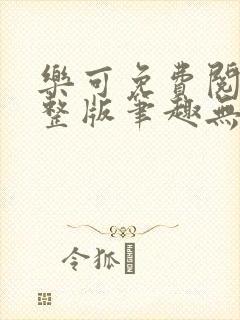 樂可免費閱
整版筆趣無
令狐